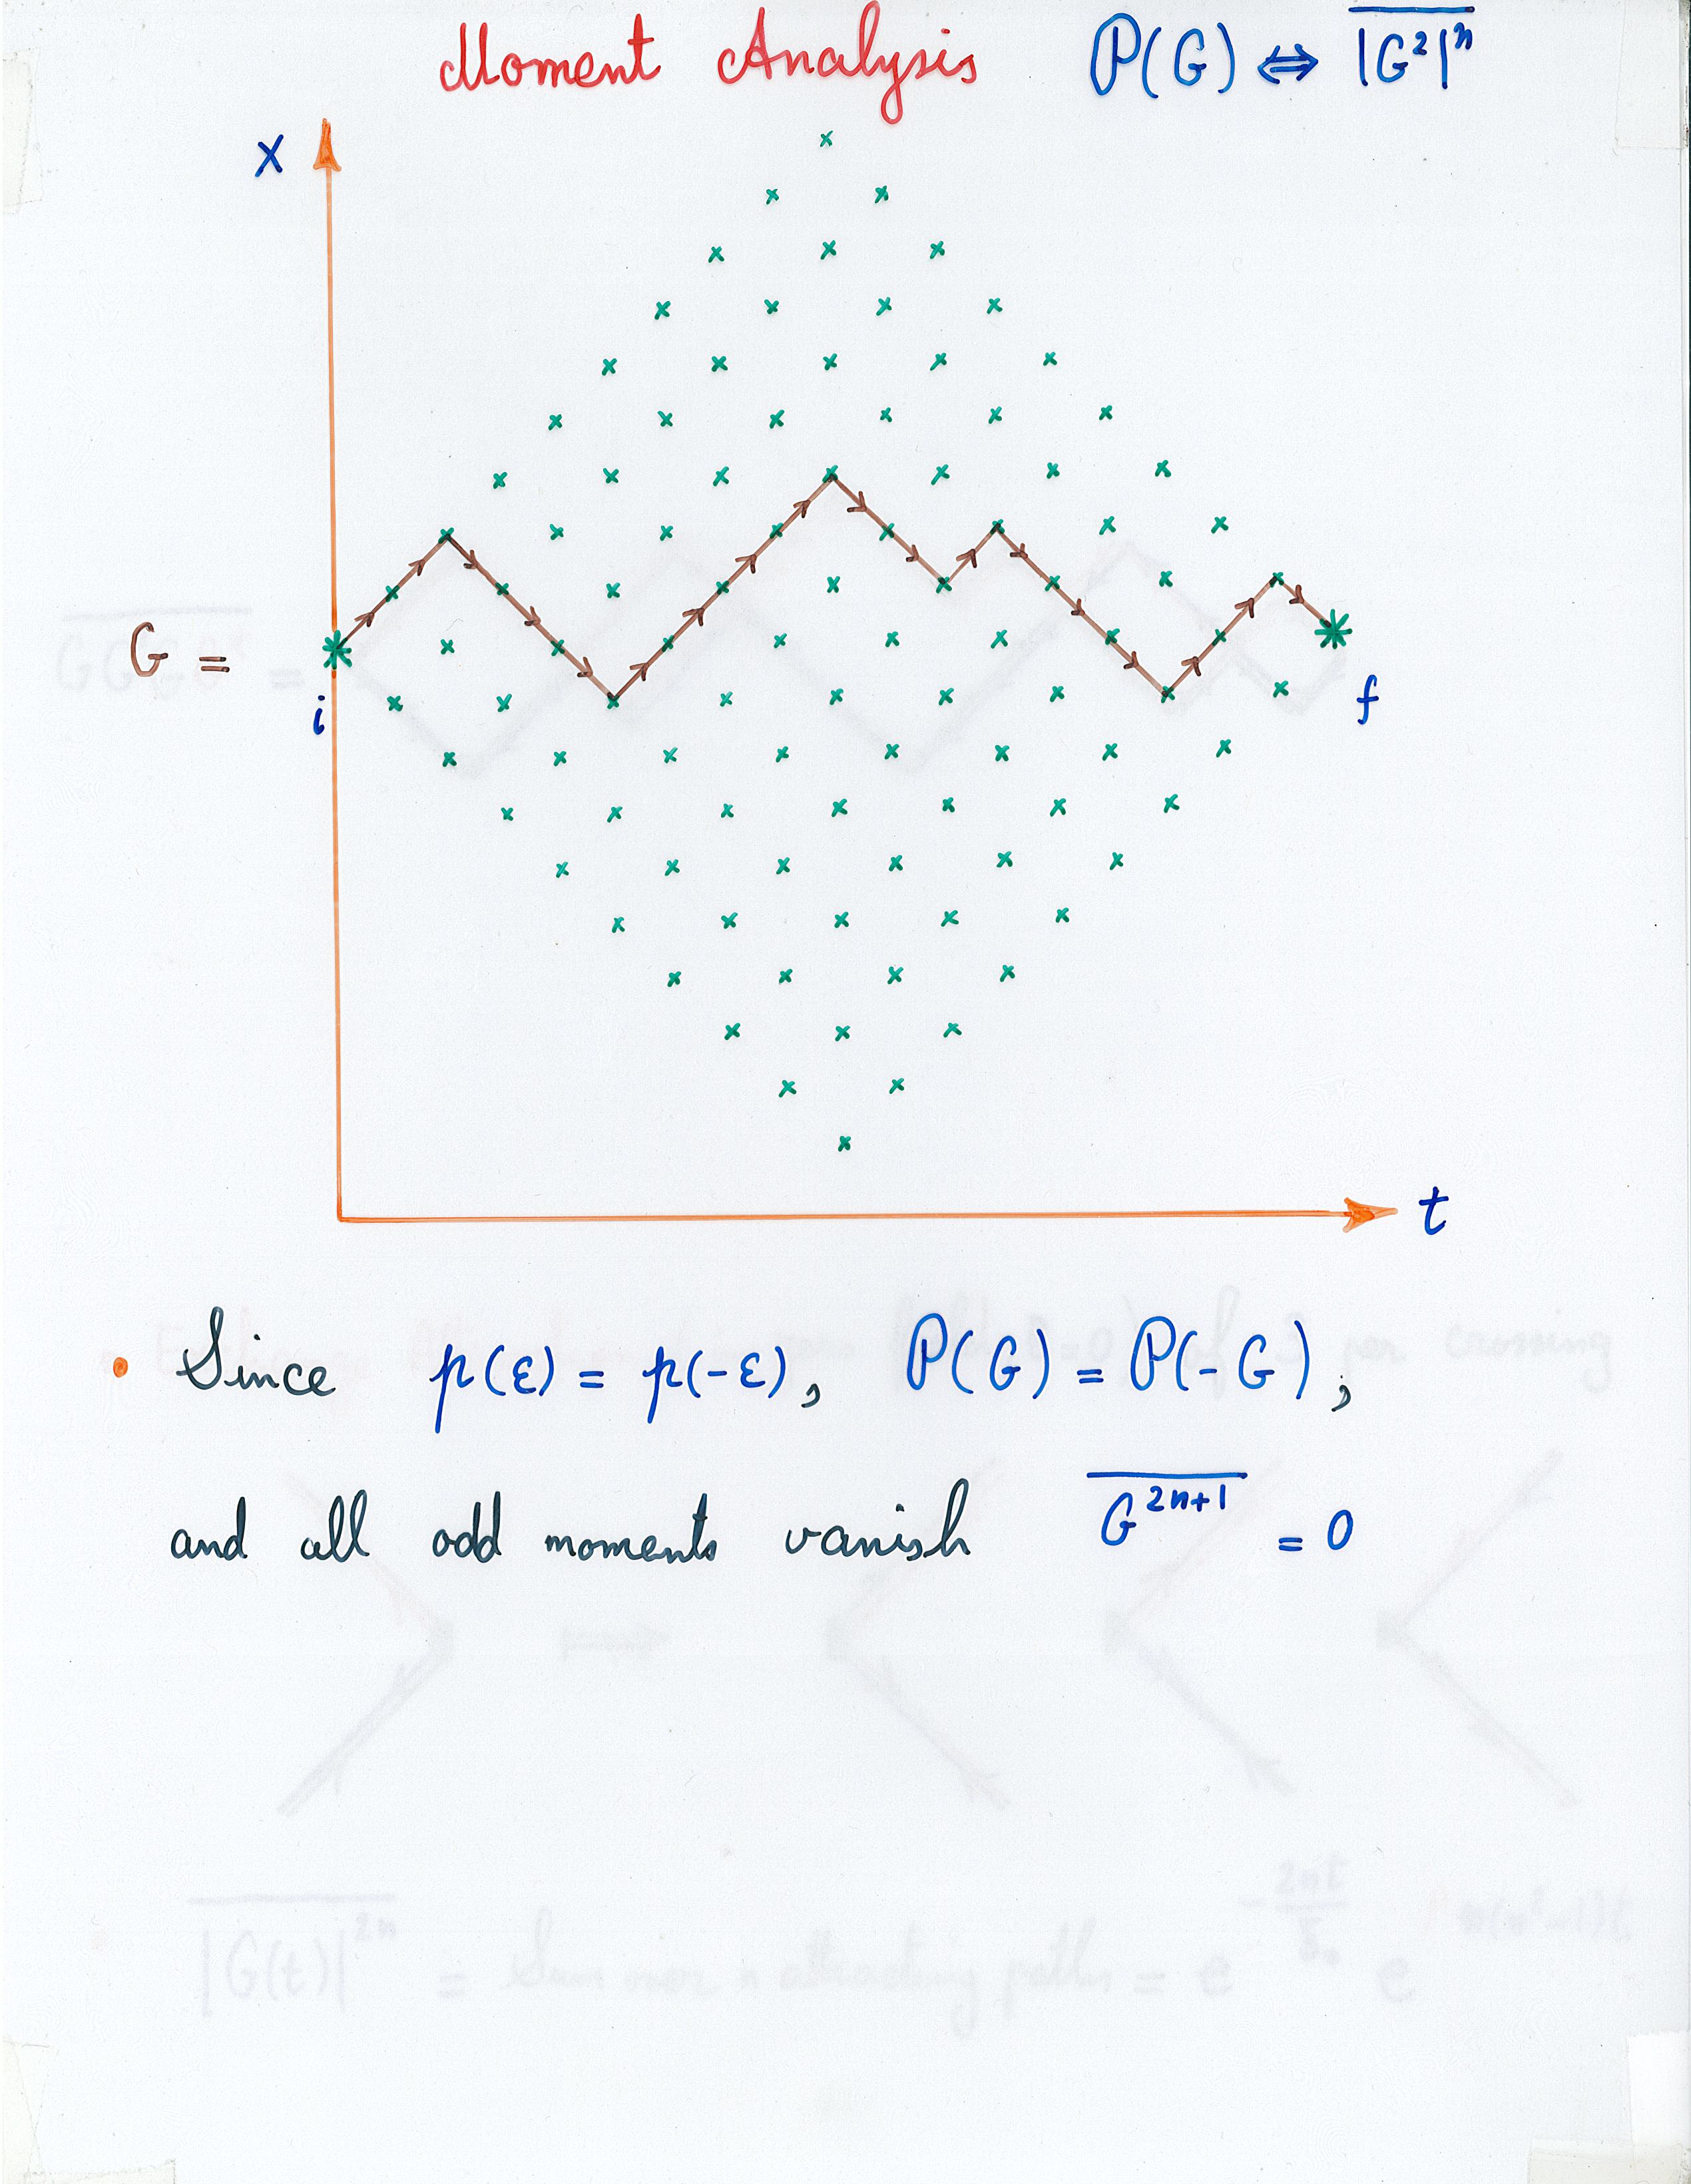 Moment Analysis P(G) ⇔ \overline{|G²|ⁿ}
x
G =
i
f
t
• Since p(ε) = p(-ε), P(G) = P(-G),
and all odd moments vanish \overline{G^{2n+1}} = 0